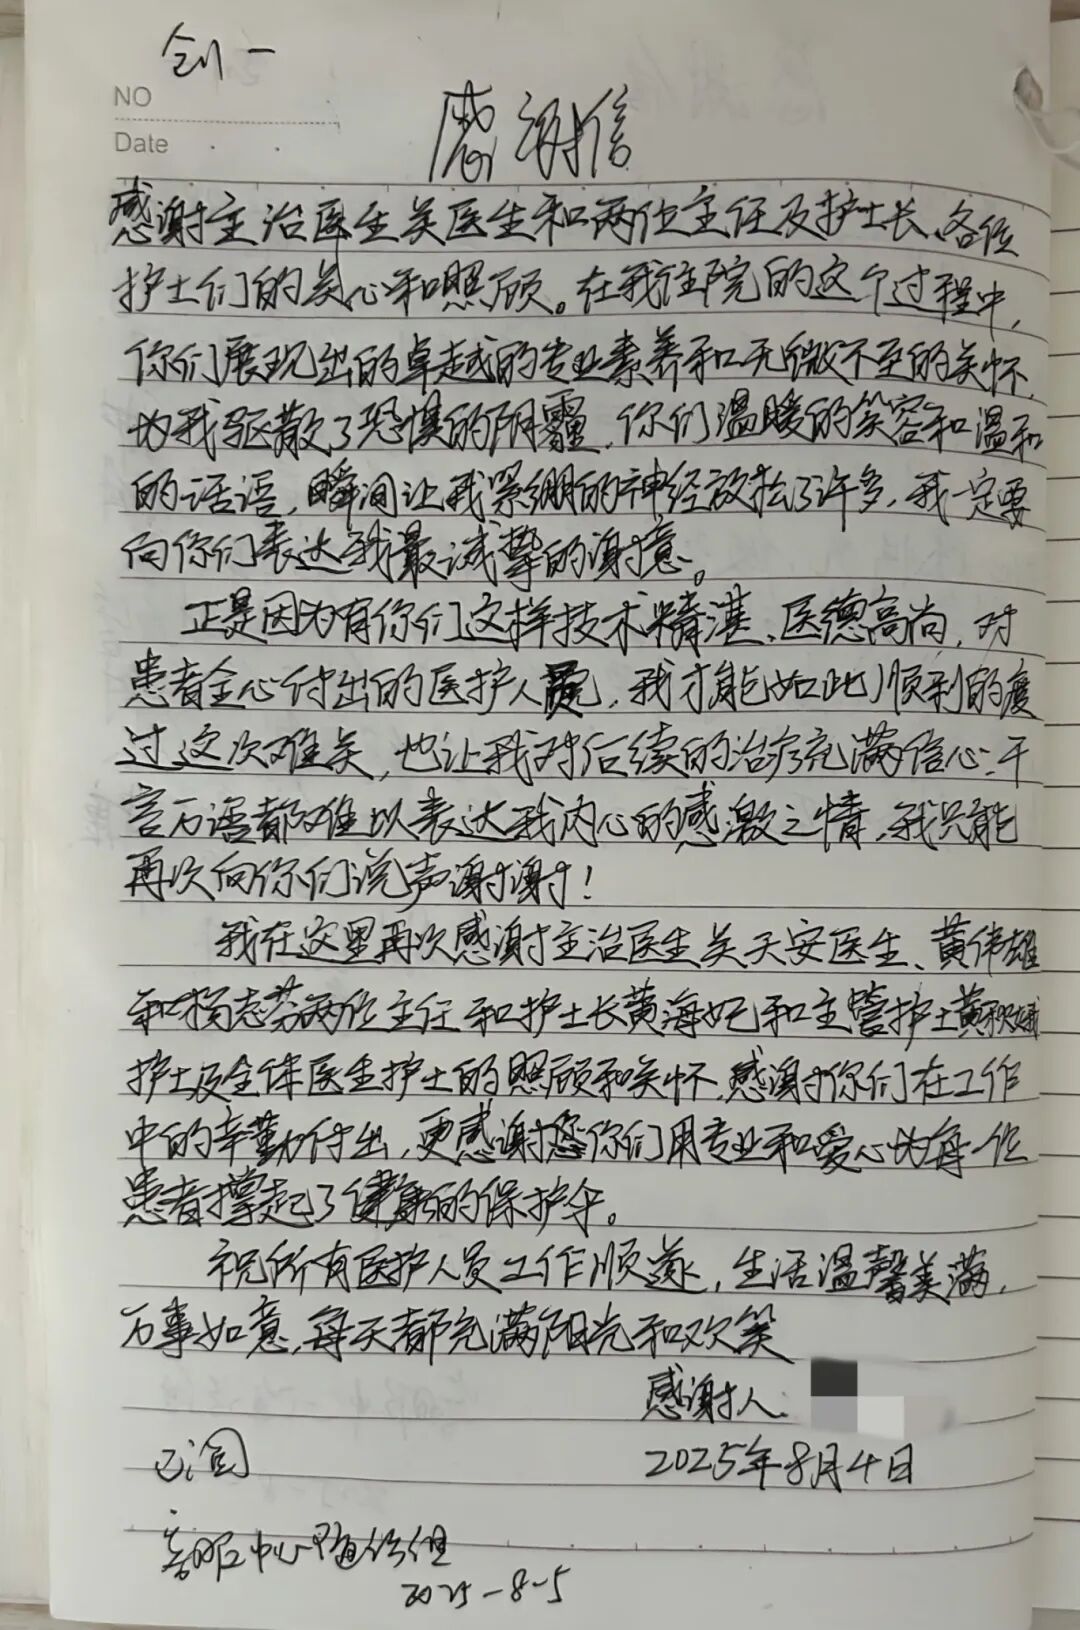 创一
NO
Date
感谢信
感谢主治医生关医生和两位主任及护士长、各位
护士们的关心和照顾。在我住院的这个过程中,
你们展现出的卓越的专业素养和无微不至的关怀,
为我驱散了恐惧的阴霾,你们温暖的笑容和温和
的话语,瞬间让我紧绷的神经放松了许多,我一定要
向你们表达我最诚挚的谢意。
正是因为有你们这样技术精湛、医德高尚,对
患者全心付出的医护人员,我才能如此顺利的度
过这次难关,也让我对后续的治疗充满信心.千
言万语都难以表达我内心的感激之情,我只能
再次向你们说声谢谢!
我在这里再次感谢主治医生关天安医生、黄伟雄
和杨志芬两位主任和护士长黄海妃和主管护士黄秋娥
护士及全体医生护士的照顾和关怀,感谢你们在工作
中的辛勤付出,更感谢您你们用专业和爱心为每一位
患者撑起了健康的保护伞。
祝所有医护人员工作顺遂,生活温馨美满,
万事如意,每天都充满阳光和欢笑
感谢人:
2025年8月4日
已阅
客服中心
2025-8-5